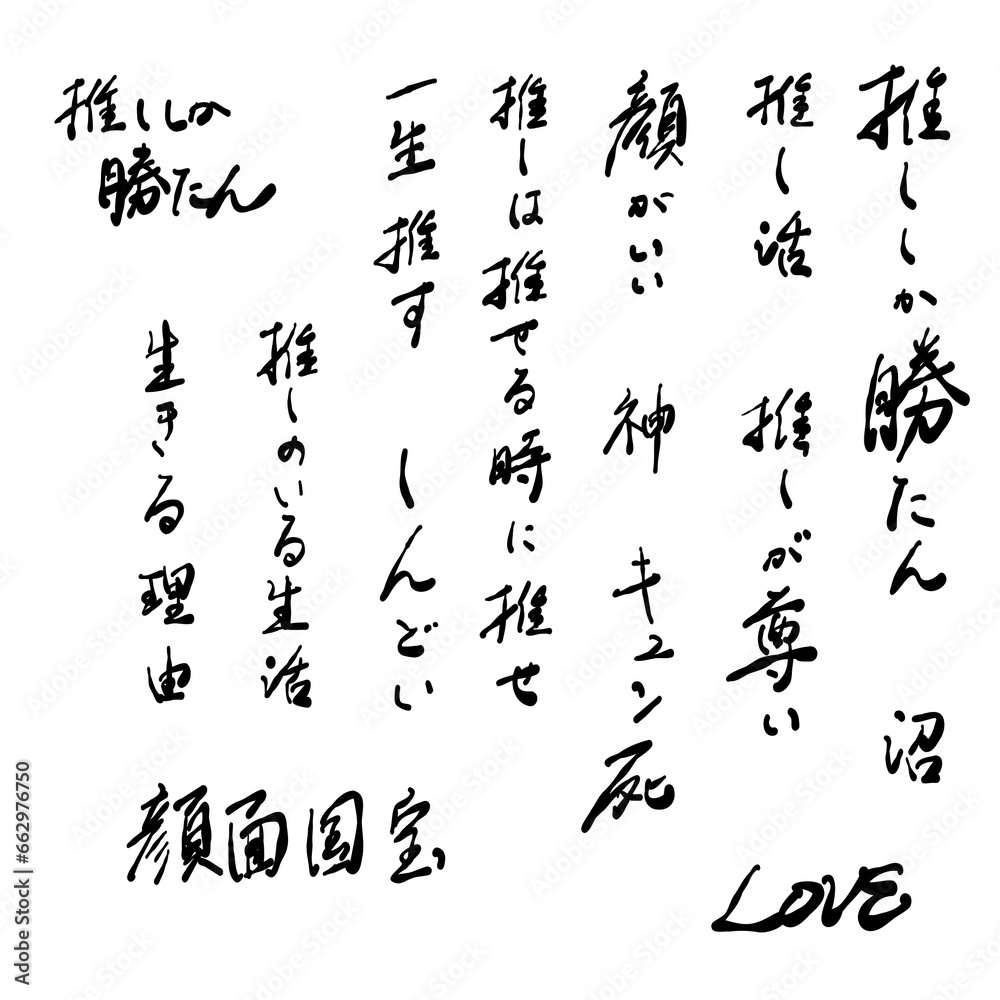 推ししか勝たん
沼
推し活
推しが尊い
顔がいい
神
キュン死
推しは推せる時に推せ
一生推す
しんどい
推しのいる生活
生きる理由
推ししか
勝たん
顔面国宝
LOVE
Adobe Stock | #662976750